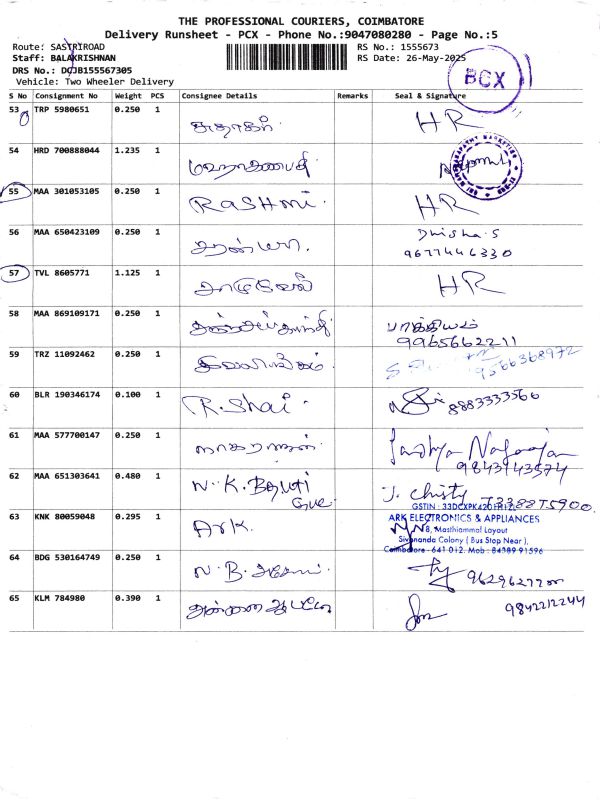 THE PROFESSIONAL COURIERS, COIMBATORE
Delivery Runsheet - PCX - Phone No.:9047080280 - Page No.:5
Route: SASTRIROAD
RS No.: 1555673
Staff: BALAKRISHNAN
RS Date: 26-May-2025
DRS No.: DCJB155567305
Vehicle: Two Wheeler Delivery
BCX
S No Consignment No Weight PCS Consignee Details Remarks Seal & Signature
53 TRP 5980651 0.250 1 சுதாகர் HR
54 HRD 700888044 1.235 1
55 MAA 301053105 0.250 1 RASHMI. HR
56 MAA 650423109 0.250 1 Dhisha.S
9677446330
57 TVL 8605771 1.125 1 HR
58 MAA 869109171 0.250 1 பாக்கியம்
9965662211
59 TRZ 11092462 0.250 1 9566368972
60 BLR 190346174 0.100 1 R. Shai. 8883333566
61 MAA 577700147 0.250 1 நாகராஜன். Sandhya Nagarajan
9843143574
62 MAA 651303641 0.480 1 N.K. J. Christy 7338875900.
63 KNK 80059048 0.295 1 Ark.
GSTIN : 33DCXPK420
ARK ELECTRONICS & APPLIANCES
8, Masthiammal Layout
Sivananda Colony ( Bus Stop Near ),
Coimbatore - 641 012. Mob : 84389 91596
64 BDG 530164749 0.250 1 N. B.
65 KLM 784980 0.390 1 9842212244